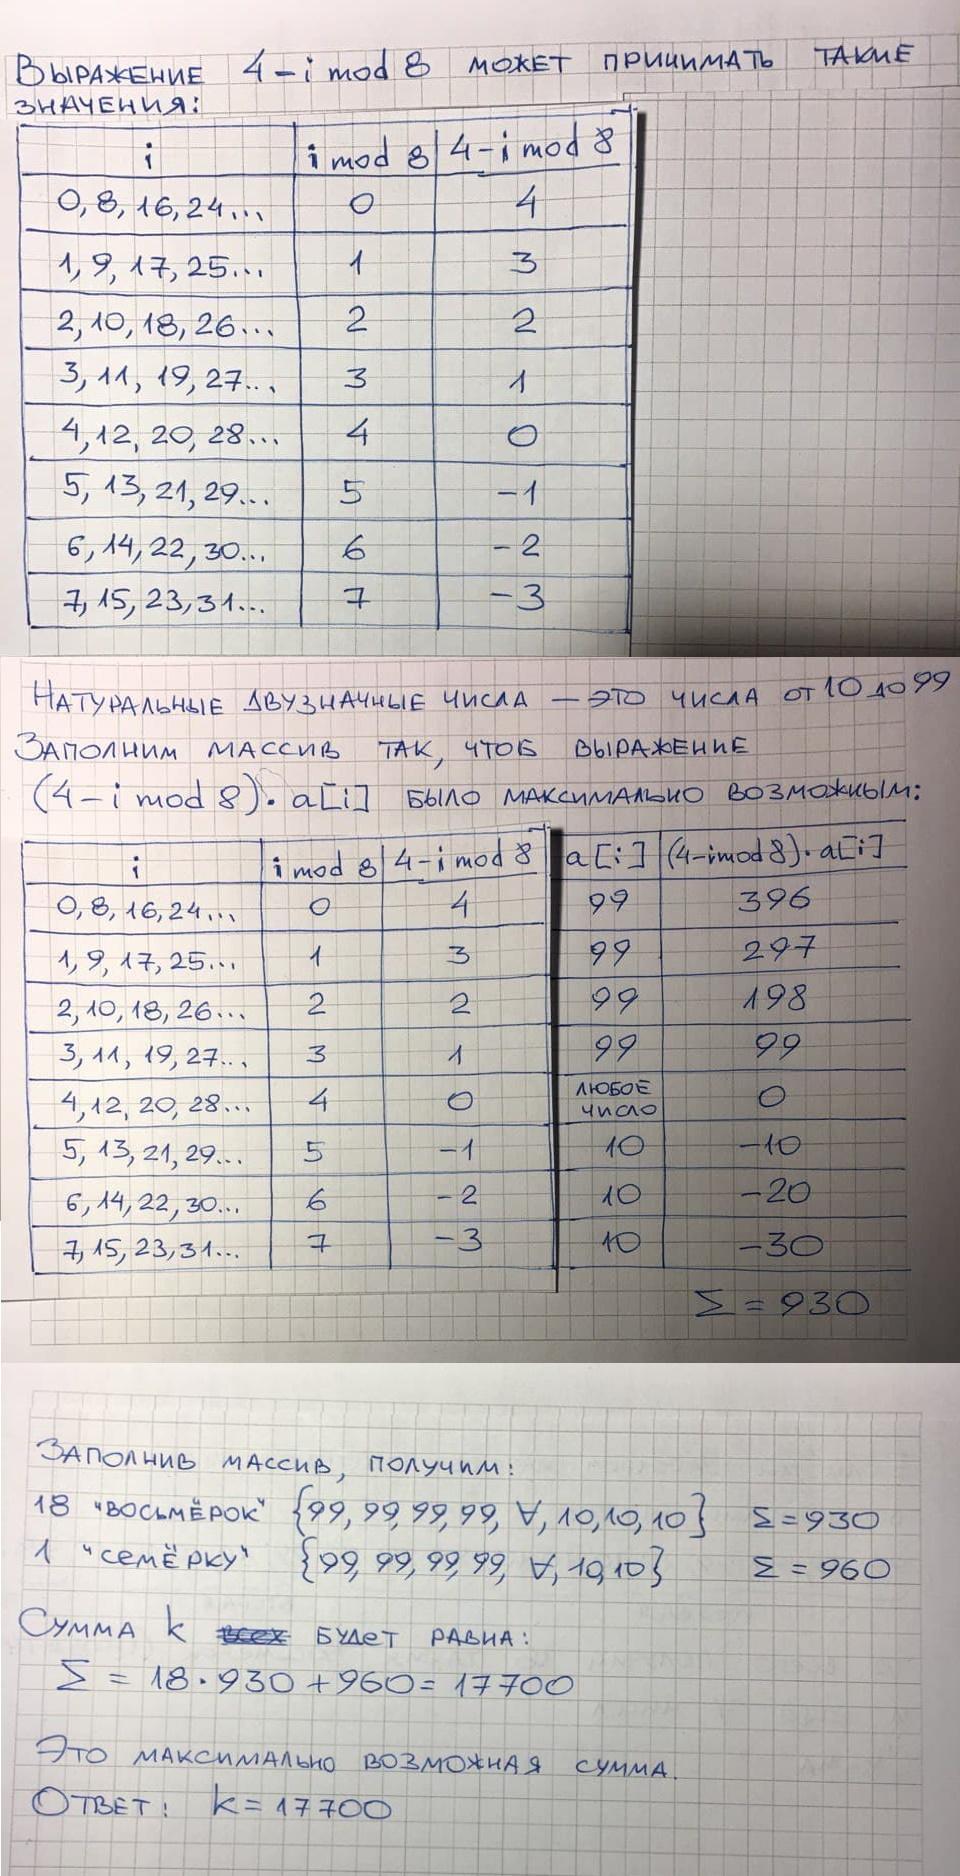 Выражение 4-i mod 8 может принимать такие
значения:
i i mod 8 4-i mod 8
0, 8, 16, 24... 0 4
1, 9, 17, 25... 1 3
2, 10, 18, 26... 2 2
3, 11, 19, 27... 3 1
4, 12, 20, 28... 4 0
5, 13, 21, 29... 5 -1
6, 14, 22, 30... 6 -2
7, 15, 23, 31... 7 -3
Натуральные двузначные числа — это числа от 10 до 99
Заполним массив так, чтоб выражение
(4-i mod 8)·a[i] было максимально возможным:
i i mod 8 4-i mod 8 a[i] (4-i mod 8)·a[i]
0, 8, 16, 24... 0 4 99 396
1, 9, 17, 25... 1 3 99 297
2, 10, 18, 26... 2 2 99 198
3, 11, 19, 27... 3 1 99 99
4, 12, 20, 28... 4 0 любое число 0
5, 13, 21, 29... 5 -1 10 -10
6, 14, 22, 30... 6 -2 10 -20
7, 15, 23, 31... 7 -3 10 -30
Σ = 930
Заполнив массив, получим:
18 "восьмёрок" {99, 99, 99, 99, ∀, 10, 10, 10} Σ = 930
1 "семёрку" {99, 99, 99, 99, ∀, 10, 10} Σ = 960
Сумма k всех будет равна:
Σ = 18·930 + 960 = 17700
Это максимально возможная сумма.
Ответ: k = 17700